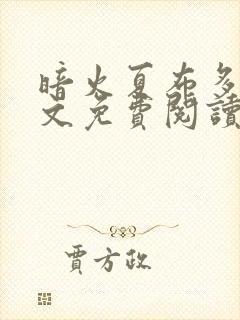 暗火夏布多
文免費閱讀
賈方政